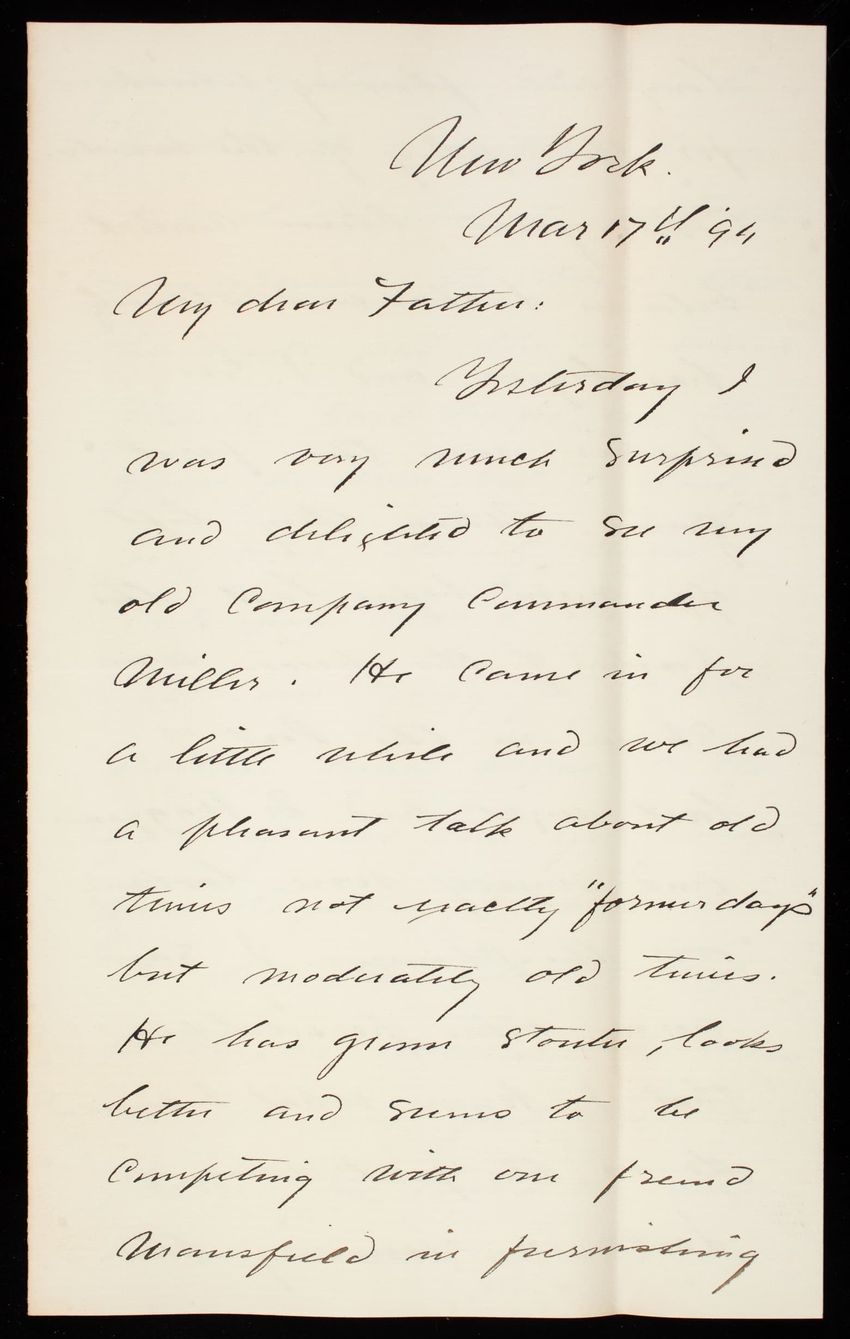 New York.
Mar 17th '94
My dear Father:
Yesterday I
was very much surprised
and delighted to see my
old Company Commander
Miller. He came in for
a little while and we had
a pleasant talk about old
times not exactly "former days"
but moderately old times.
He has grown stouter, looks
better and seems to be
competing with our friend
Mansfield in furnishing